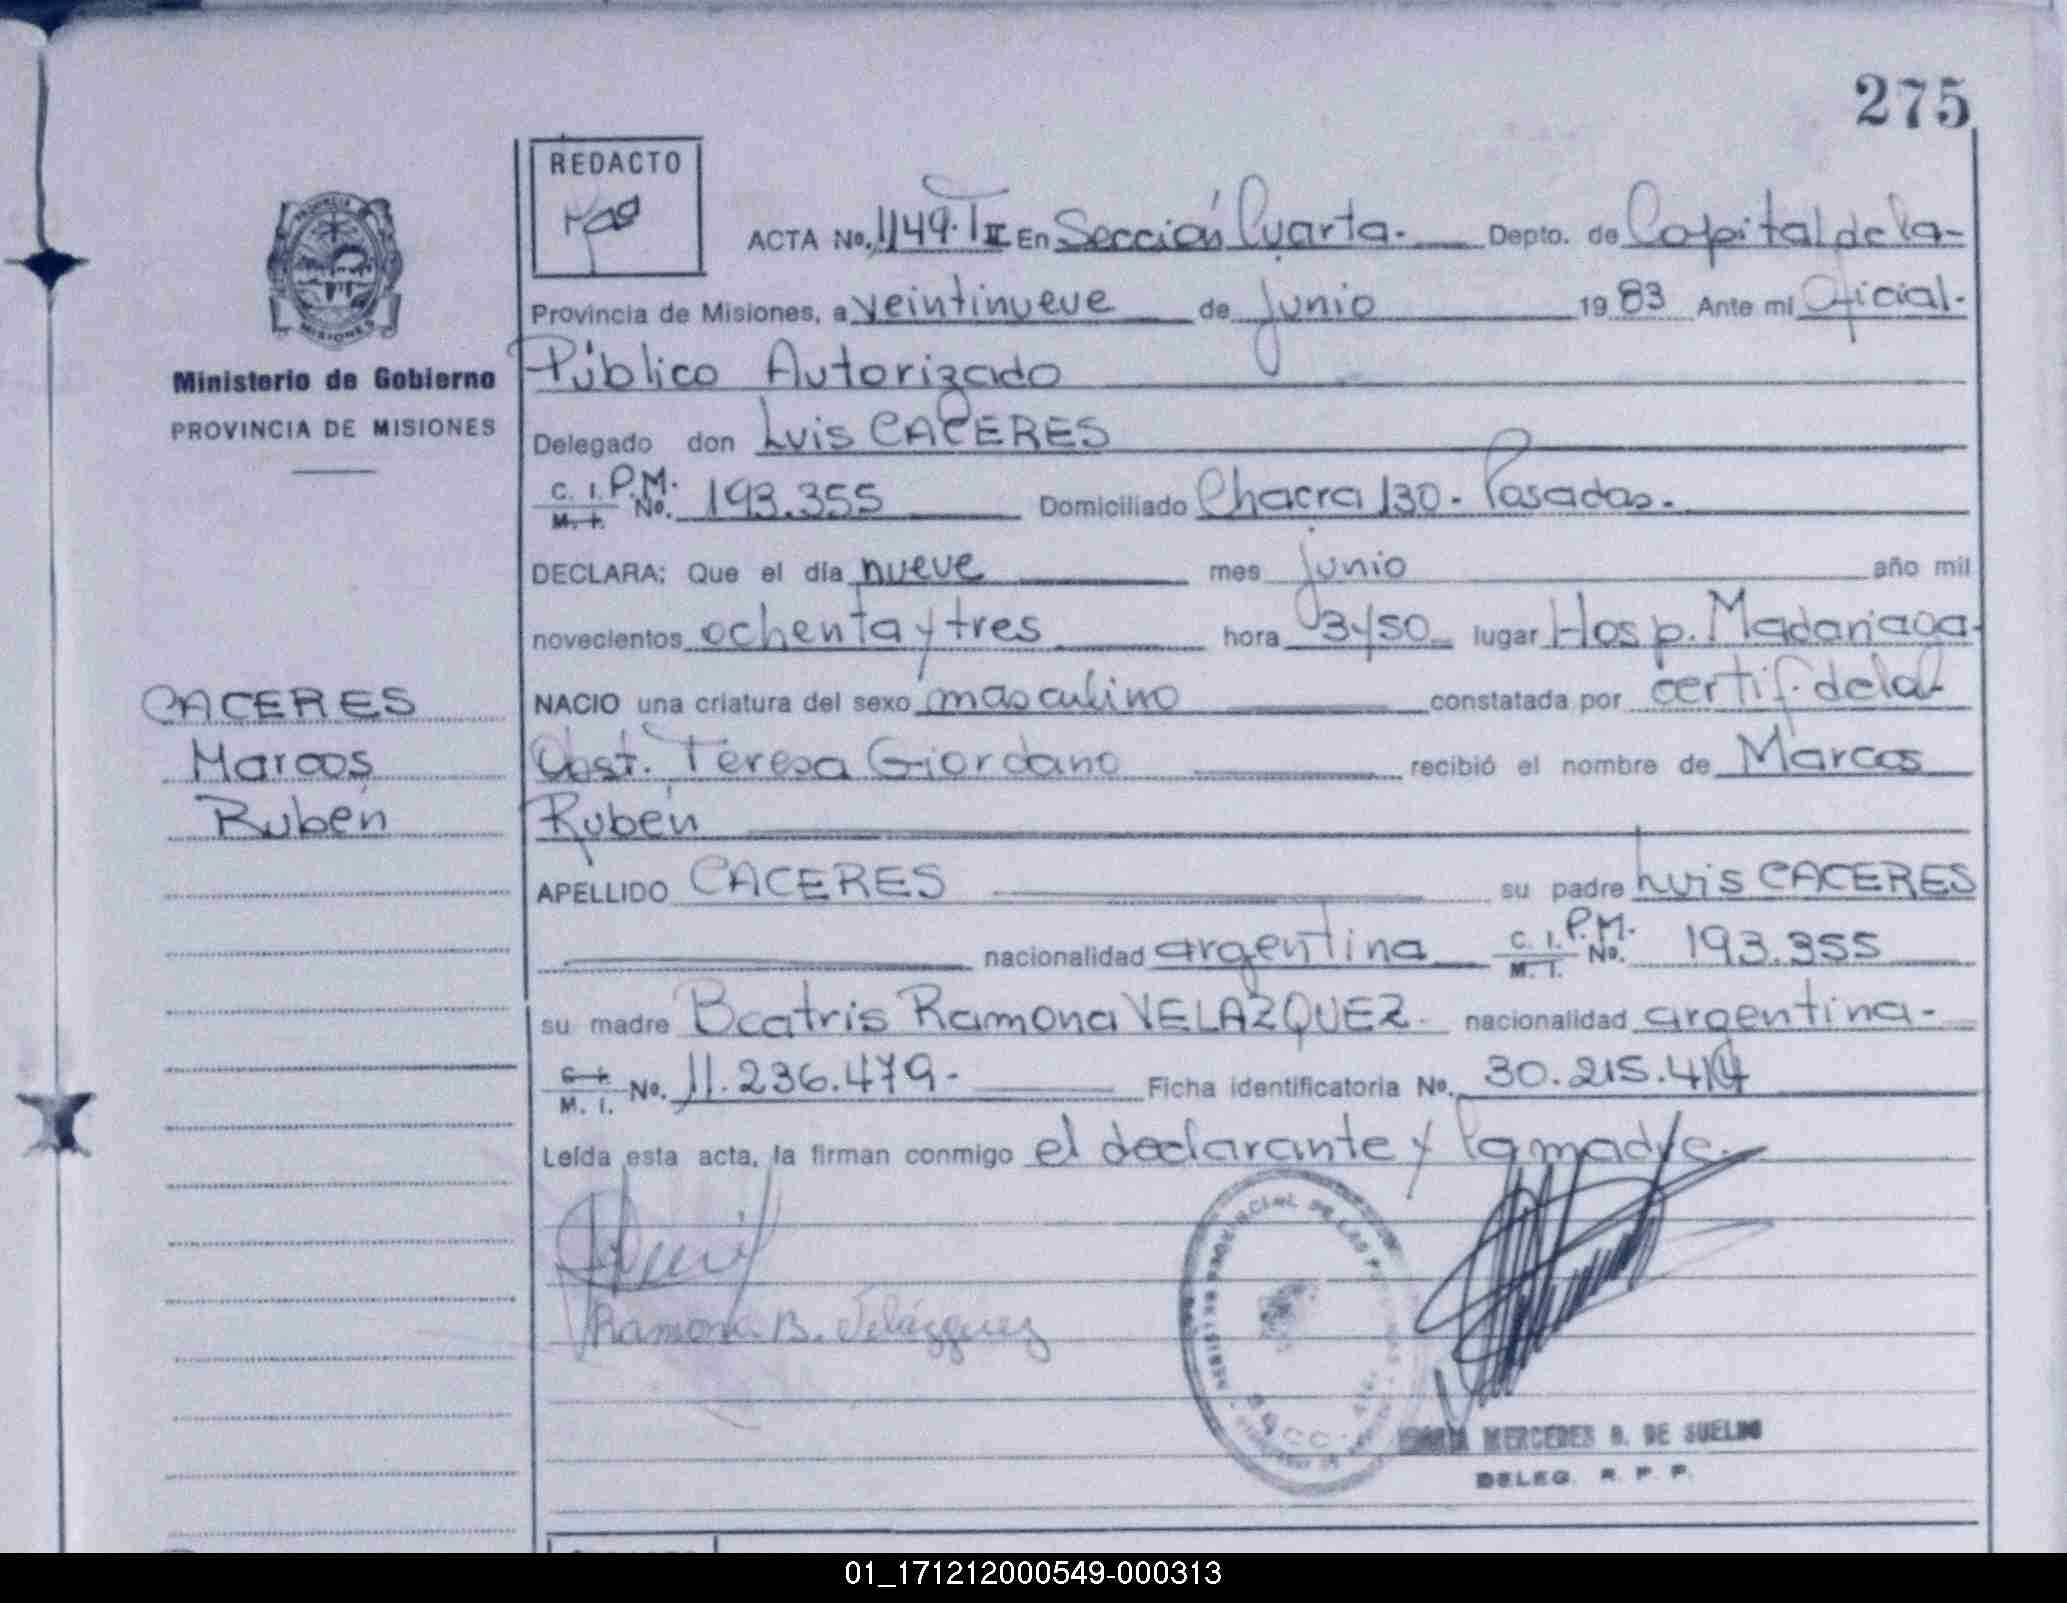 275
REDACTO
ACTA No. 1149. T II En Sección Cuarta. Depto. de Capital de la
Provincia de Misiones, a veintinueve de junio 1983 Ante mi Oficial
Público Autorizado
Delegado don Luis CACERES
C. I. P.M. No. 193.355 Domiciliado Chacra 130. Posadas.
M. I.
DECLARA: Que el día nueve mes junio año mil
novecientos ochenta y tres hora 3y50 lugar Hosp. Madariaga
NACIO una criatura del sexo masculino constatada por certif. de la
Obst. Teresa Giordano recibió el nombre de Marcos
Rubén
APELLIDO CACERES su padre Luis CACERES
nacionalidad argentina C. I. P.M. No. 193.355
M. I.
su madre Beatris Ramona VELAZQUEZ. nacionalidad argentina-
C. I.
M. I. No. 11.236.479.- Ficha identificatoria No. 30.215.414
Leída esta acta, la firman conmigo el declarante y la madre.
Ramona B. Velázquez
MERCEDES DE SUELDO
DELEG. R. P. P.
PROVINCIA
MISIONES
Ministerio de Gobierno
PROVINCIA DE MISIONES
CACERES
Marcos
Rubén
01_171212000549-000313